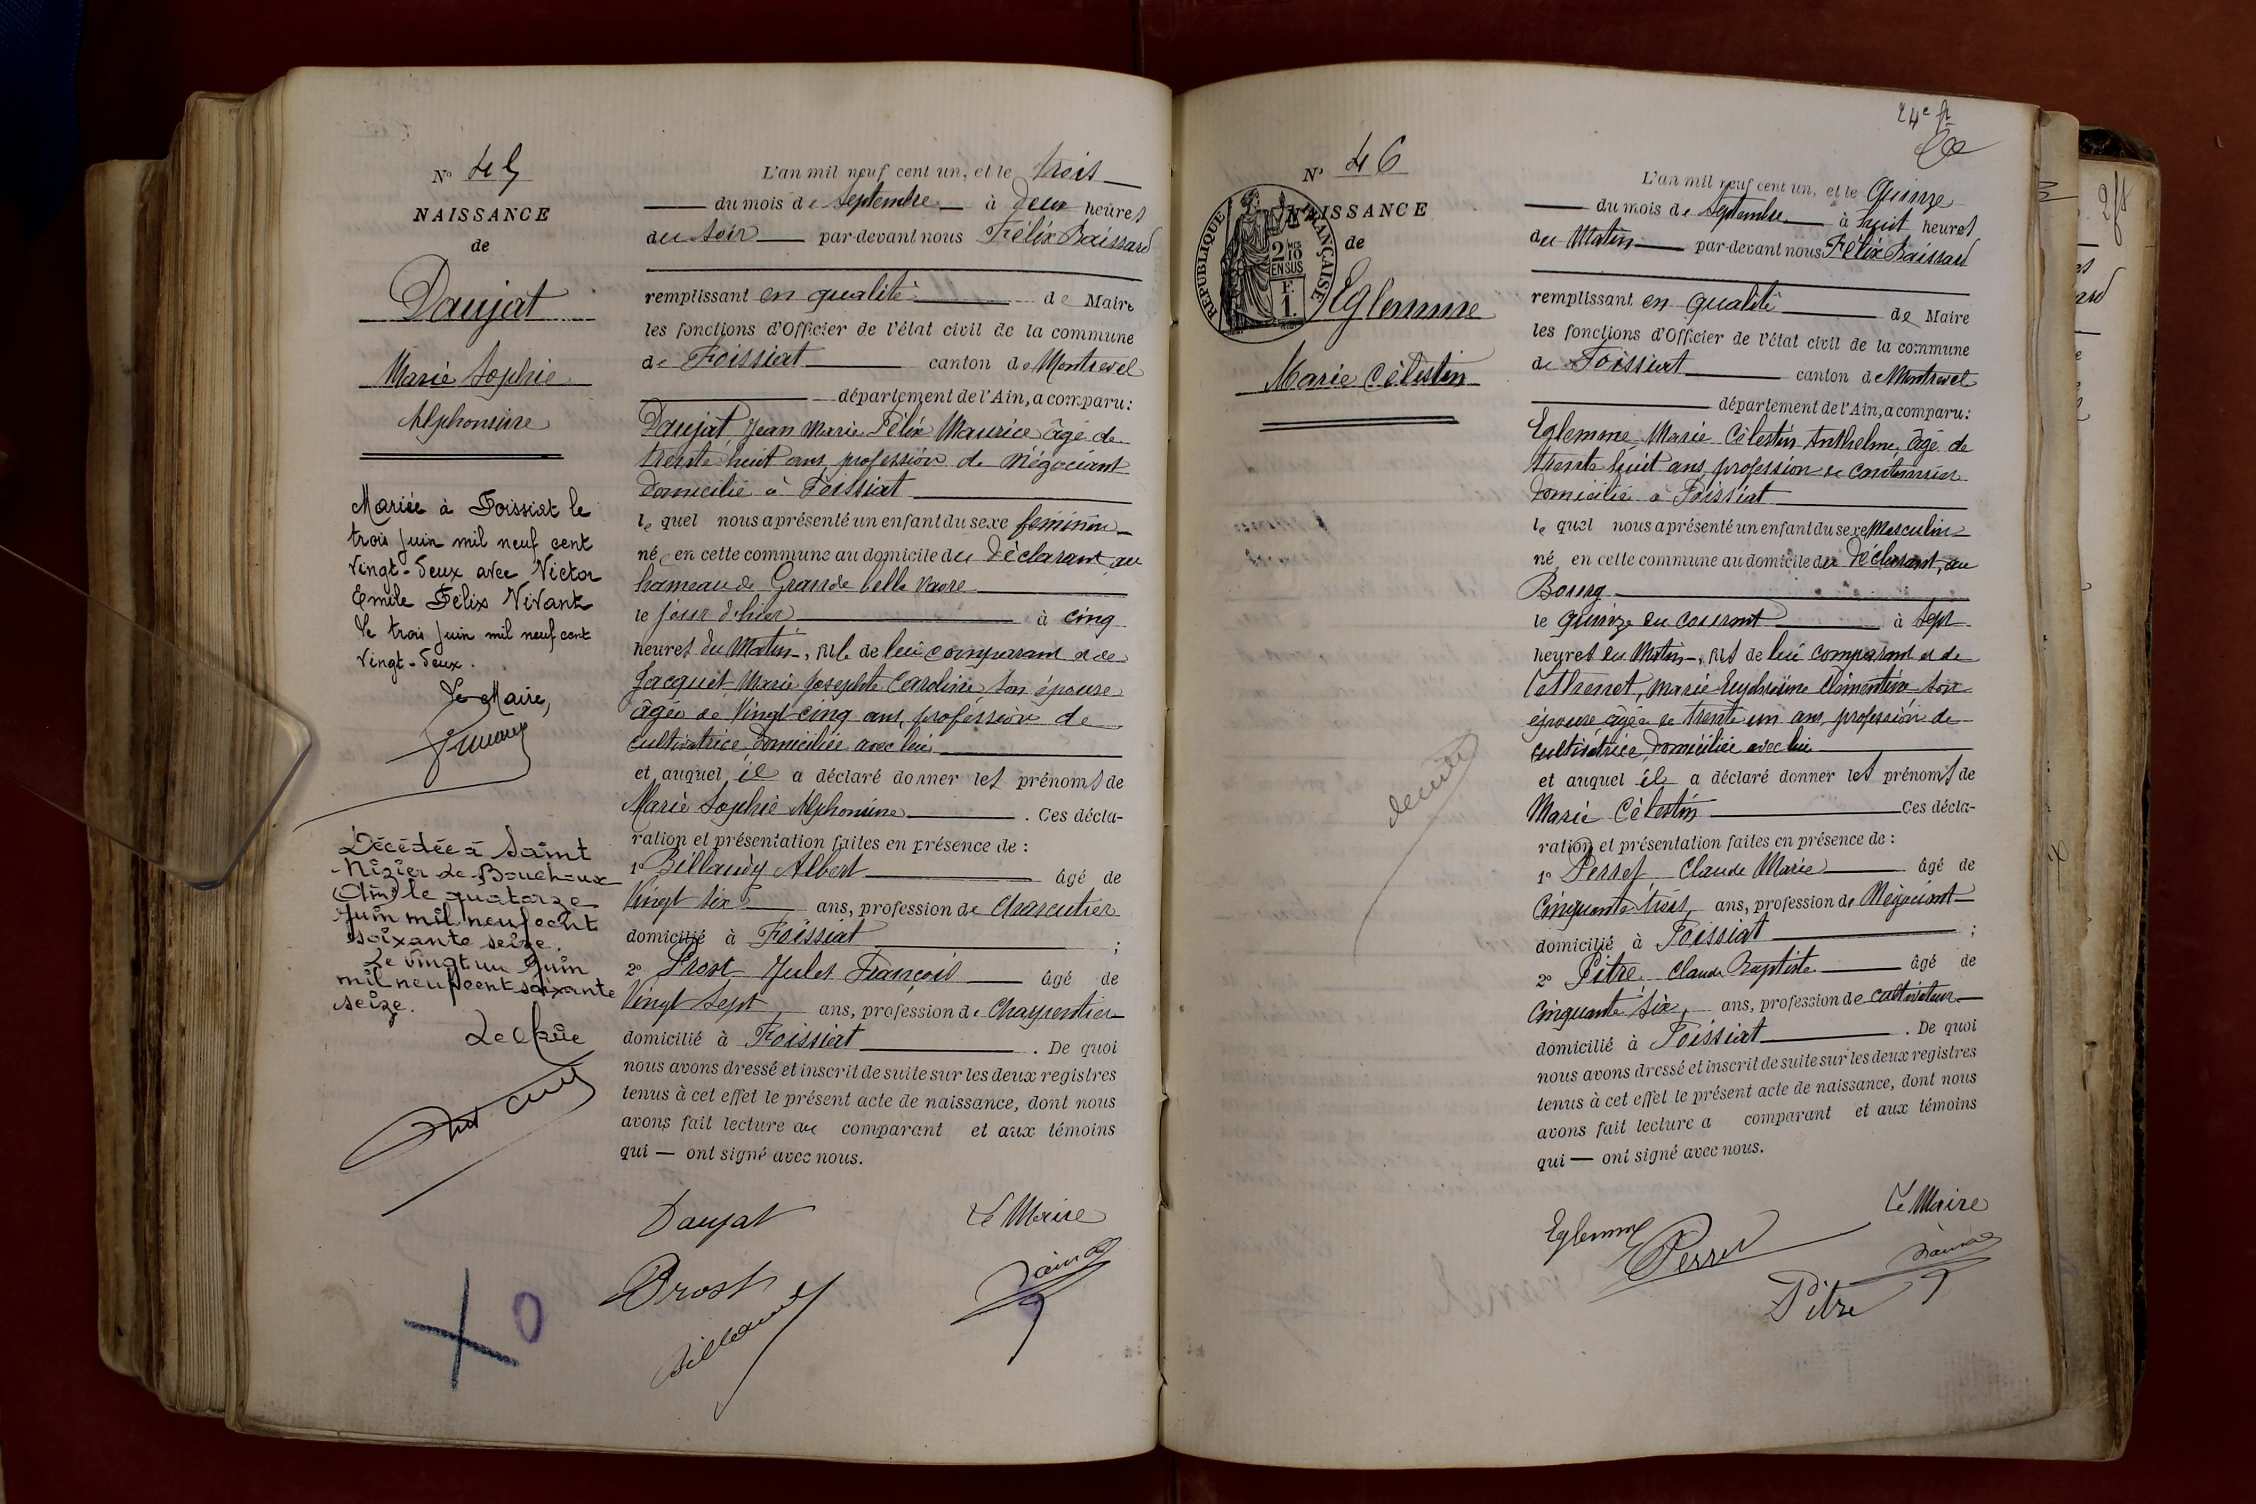 N° 45
NAISSANCE
de
Daujat
Marie Sophie
Alphonsine
Mariée à Foissiat le
trois juin mil neuf cent
vingt-deux avec Victor
Emile Félix Vivant
Le trois juin mil neuf cent
vingt-deux.
Le Maire,
Décédée à Saint
Nizier-le-Bouchoux
(Ain) le quatorze
juin mil neuf cent
soixante seize.
Le vingt un Juin
mil neuf cent soixante
seize.
L'an mil neuf cent un, et le trois
du mois de Septembre à deux heures
du soir par-devant nous Félix Baissard
remplissant en qualité de Maire
les fonctions d'Officier de l'état civil de la commune
de Foissiat canton de Montrevel
département de l'Ain, a comparu:
Daujat, Jean Marie Félix Maurice âgé de
trente huit ans, profession de Négociant
domicilié à Foissiat
le quel nous a présenté un enfant du sexe féminin
né en cette commune au domicile du Déclarant, au
hameau de Grande belle vavre
le jour d'hier à cinq
heures du Matin, fille de lui comparant et de
Jacquet Marie Josephte Caroline son épouse
âgée de vingt-cinq ans, profession de
cultivatrice domiciliée avec lui
et auquel il a déclaré donner les prénoms de
Marie Sophie Alphonsine. Ces décla-
ration et présentation faites en présence de :
1° Billaudy Albert âgé de
Vingt six ans, profession de Charcutier
domicilié à Foissiat ;
2° Prost Jules François âgé de
Vingt Sept ans, profession de Charpentier
domicilié à Foissiat. De quoi
nous avons dressé et inscrit de suite sur les deux registres
tenus à cet effet le présent acte de naissance, dont nous
avons fait lecture au comparant et aux témoins
qui — ont signé avec nous.
Daujat Le Maire
Prost
24e ft
N° 46
NAISSANCE
de
REPUBLIQUE FRANÇAISE
2 10
EN SUS
F.
1.
Eglemme
Marie Célestin
L'an mil neuf cent un, et le Quinze
du mois de Septembre à huit heures
du Matin par-devant nous Félix Baissard
remplissant en qualité de Maire
les fonctions d'Officier de l'état civil de la commune
de Foissiat canton de Montrevel
département de l'Ain, a comparu:
Eglemme Marie Célestin Anthelme, âgé de
trente huit ans, profession de Cantonnier
domicilié à Foissiat
le quel nous a présenté un enfant du sexe Masculin
né en cette commune au domicile du Déclarant, au
Bourg
le quinze du courant à Sept
heures du Matin, fils de lui comparant et de
Marie Euphrosine Clémentine son
épouse âgée de trente un ans, profession de
cultivatrice, domiciliée avec lui
et auquel il a déclaré donner les prénoms de
Marie Célestin Ces décla-
ration et présentation faites en présence de :
1° Perret Claude Marie âgé de
Cinquante trois ans, profession de Négociant
domicilié à Foissiat ;
2° Pitre Claude Baptiste âgé de
Cinquante Six ans, profession de cultivateur
domicilié à Foissiat. De quoi
nous avons dressé et inscrit de suite sur les deux registres
tenus à cet effet le présent acte de naissance, dont nous
avons fait lecture a comparant et aux témoins
qui — ont signé avec nous.
Le Maire
Eglemme Perret
Pitre